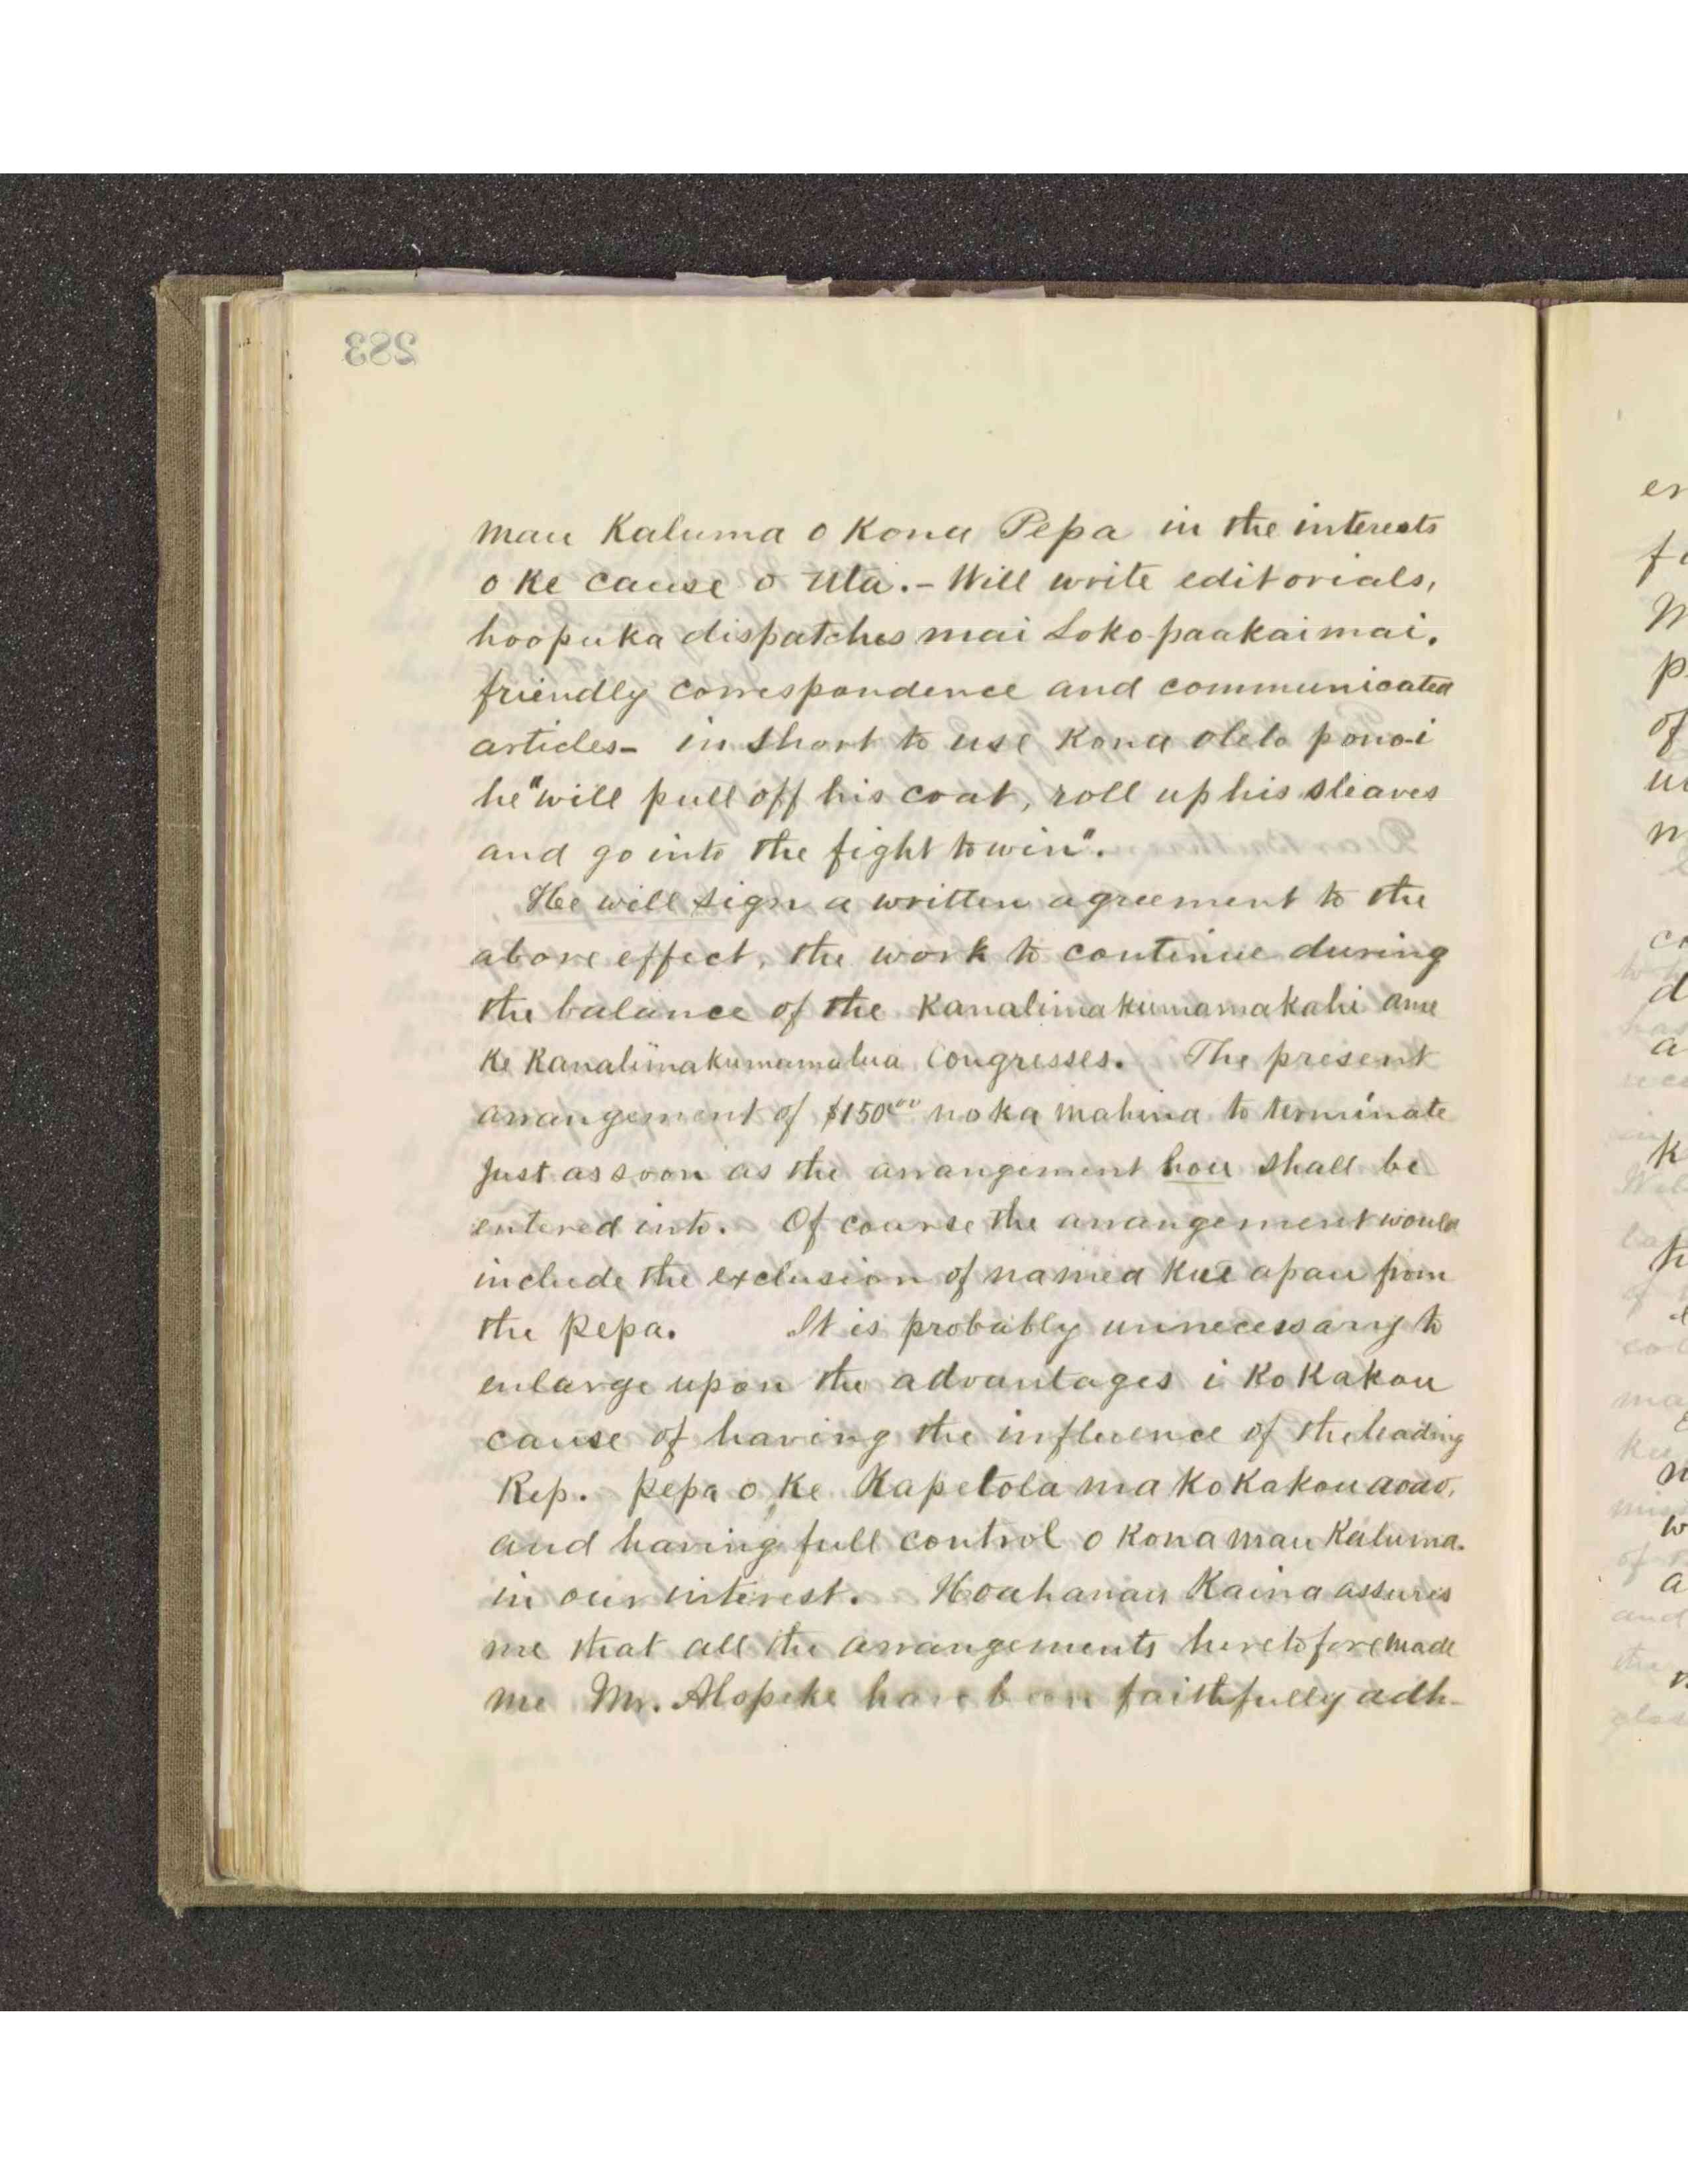 283
mau Kaluma o Kona Pepa in the interests
o ke cause o Uta.- Will write editorials,
hoopuka dispatches mai Loko-paakai mai.
friendly correspondence and communicated
articles- in short to use Kona olelo ponoi
he "will pull off his coat, roll up his sleaves
and go into the fight to win".
He will sign a written agreement to the
above effect, the work to continue during
the balance of the Kanalimakumamakahi ame
ke Kanalimakumamalua Congresses. The present
arrangement of $150.00 no ka mahina to terminate
just as soon as the arrangement hou shall be
entered into. Of course the arrangement would
include the exclusion of na mea kue apau from
the pepa. It is probably unnecessary to
enlarge upon the advantages i ko Kakou
cause of having the influence of the leading
Rep. pepa o ke Kapetola ma ko Kakou aoao,
and having full control o Kona mau Kaluma.
in our interest. Hoahanau Kaina assures
me that all the arrangements heretofore made
me Mr. Alopeke have been faithfully adh-